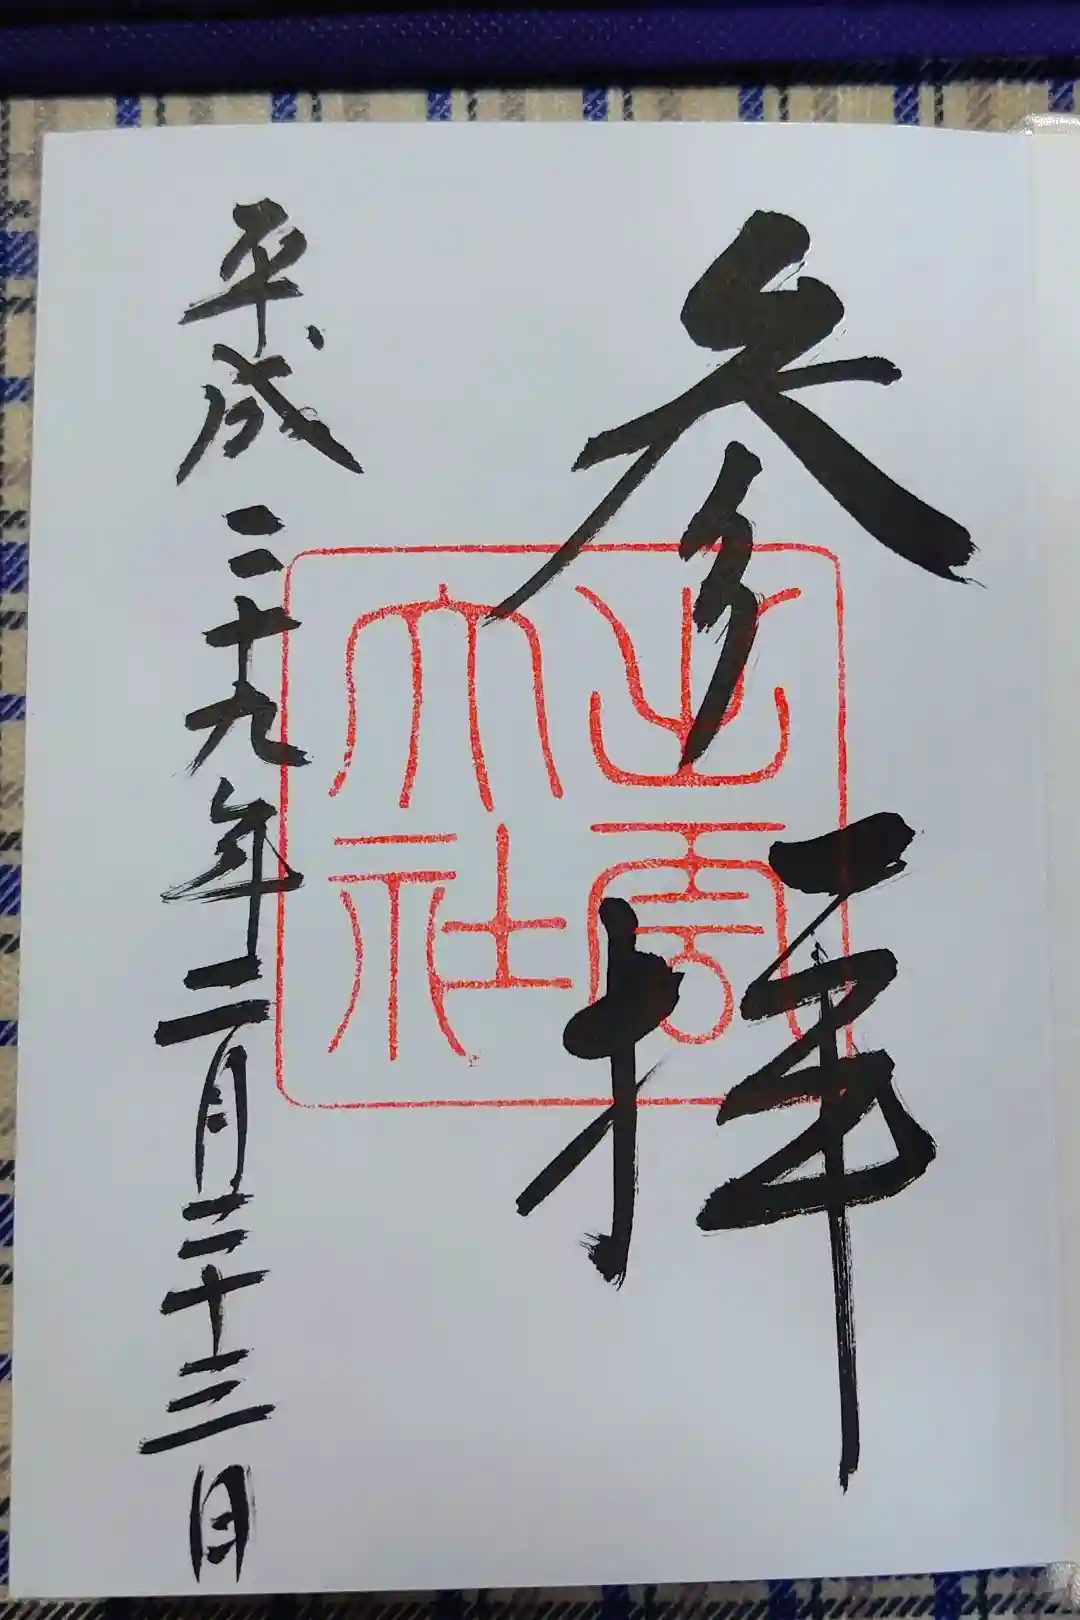 参拝
出雲
大社
平成二十九年二月二十三日